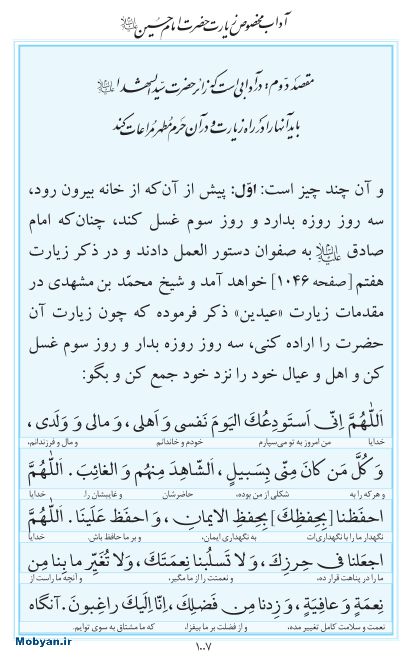 آداب مخصوص زیارت حضرت امام حسین علیه‌السلام
مقصد دوم: در آدابی است که زائر حضرت سیّد الشهدا علیه‌السلام
باید آنها را در راه زیارت و در آن حرم مطهر مراعات کند
و آن چند چیز است: اوّل: پیش از آن‌که از خانه بیرون رود،
سه روز روزه بدارد و روز سوم غسل کند، چنان‌که امام
صادق علیه‌السلام به صفوان دستور العمل دادند و در ذکر زیارت
هفتم [صفحه ۱۰۴۶] خواهد آمد و شیخ محمّد بن مشهدی در
مقدمات زیارت «عیدین» ذکر فرموده که چون زیارت آن
حضرت را اراده کنی، سه روز روزه بدار و روز سوم غسل
کن و اهل و عیال خود را نزد خود جمع کن و بگو:
اَللّٰهُمَّ اِنّی اَستَودِعُكَ الیَومَ نَفسی وَ اَهلی، وَ مالی وَ وَلَدی،
خدایا من امروز به تو می‌سپارم خودم و خاندانم و مال و فرزندانم،
وَ كُلَّ مَن كانَ مِنّی بِسَبیلٍ، اَلشّاهِدَ مِنهُم وَ الغائِبَ. اَللّٰهُمَّ
و هرکه را به شکلی از من بوده، حاضرشان و غایبشان را. خدایا
احفَظنا [بِحِفظِكَ] بِحِفظِ الایمانِ، وَ احفَظ عَلَینا. اَللّٰهُمَّ
نگهدار ما را با نگهداری‌ات به نگهداری ایمان، و بر ما حافظ باش. خدایا
اجعَلنا فی حِرزِكَ، وَ لا تَسلُبنا نِعمَتَكَ، وَ لا تُغَیِّر ما بِنا مِن
ما را در پناهت قرار ده، و نعمتت را از ما مگیر، و آنچه ما راست از
نِعمَةٍ وَ عافِیَةٍ، وَ زِدنا مِن فَضلِكَ، اِنّا اِلَیكَ راغِبونَ. آنگاه
نعمت و سلامت کامل تغییر مده، و از فضلت بر ما بیفزا، که ما مشتاق به سوی توایم.
۱۰۰۷
Mobyan.ir